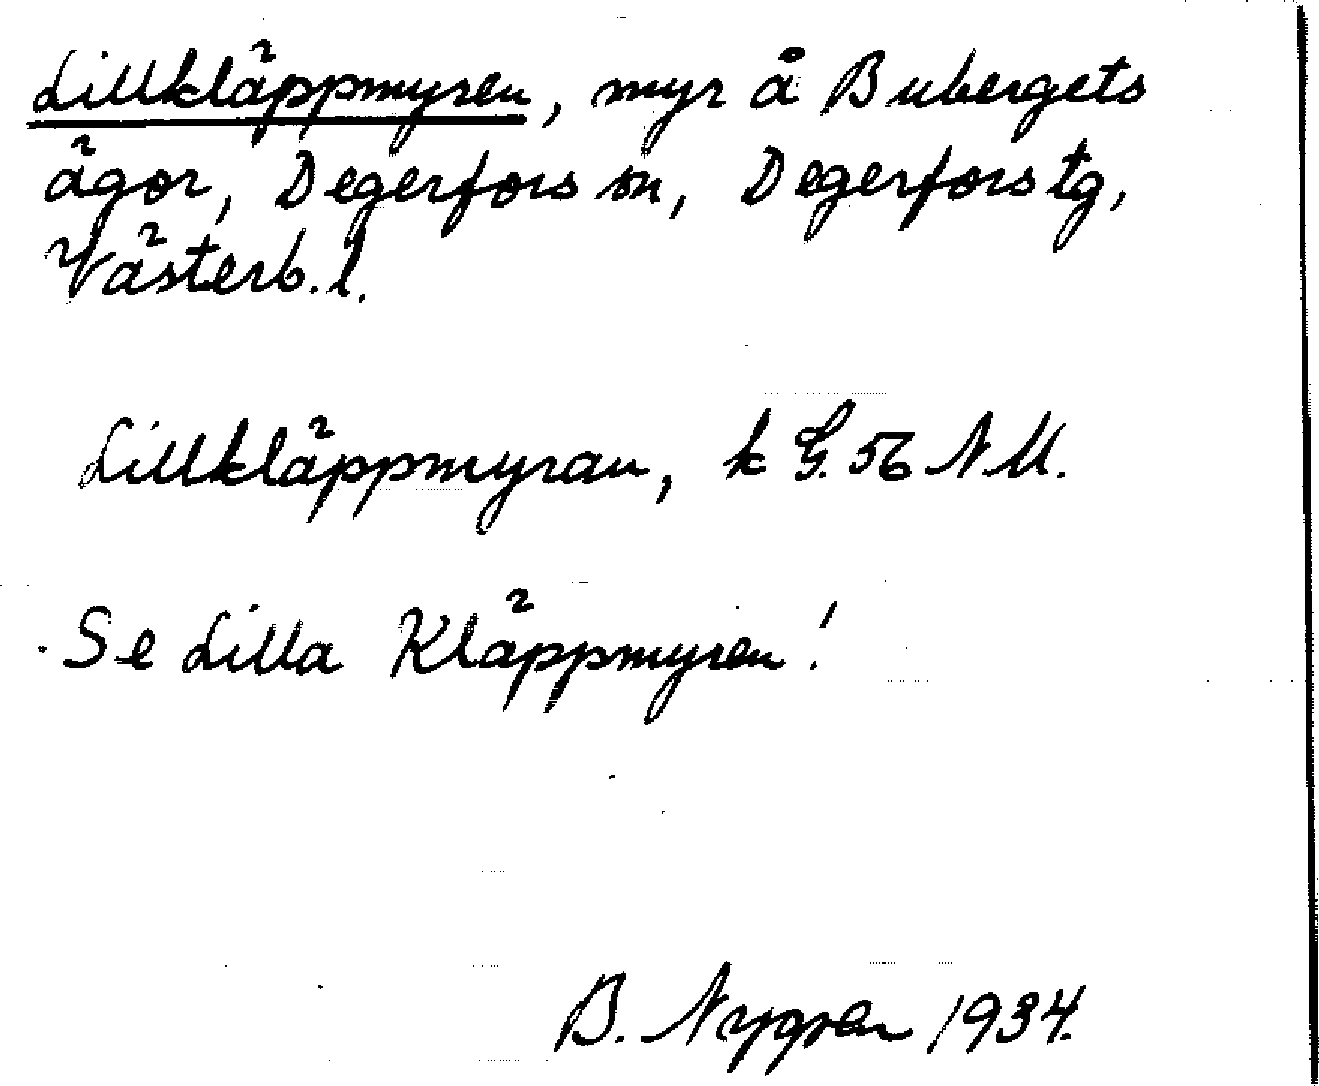 Lillkläppmyren, myr å Bubergets
ägor, Degerfors sn, Degerfors tg,
Västerb. l.
Lillkläppmyran, k G. 56 NU.
Se Lilla Kläppmyren!
B. Nygren 1934.